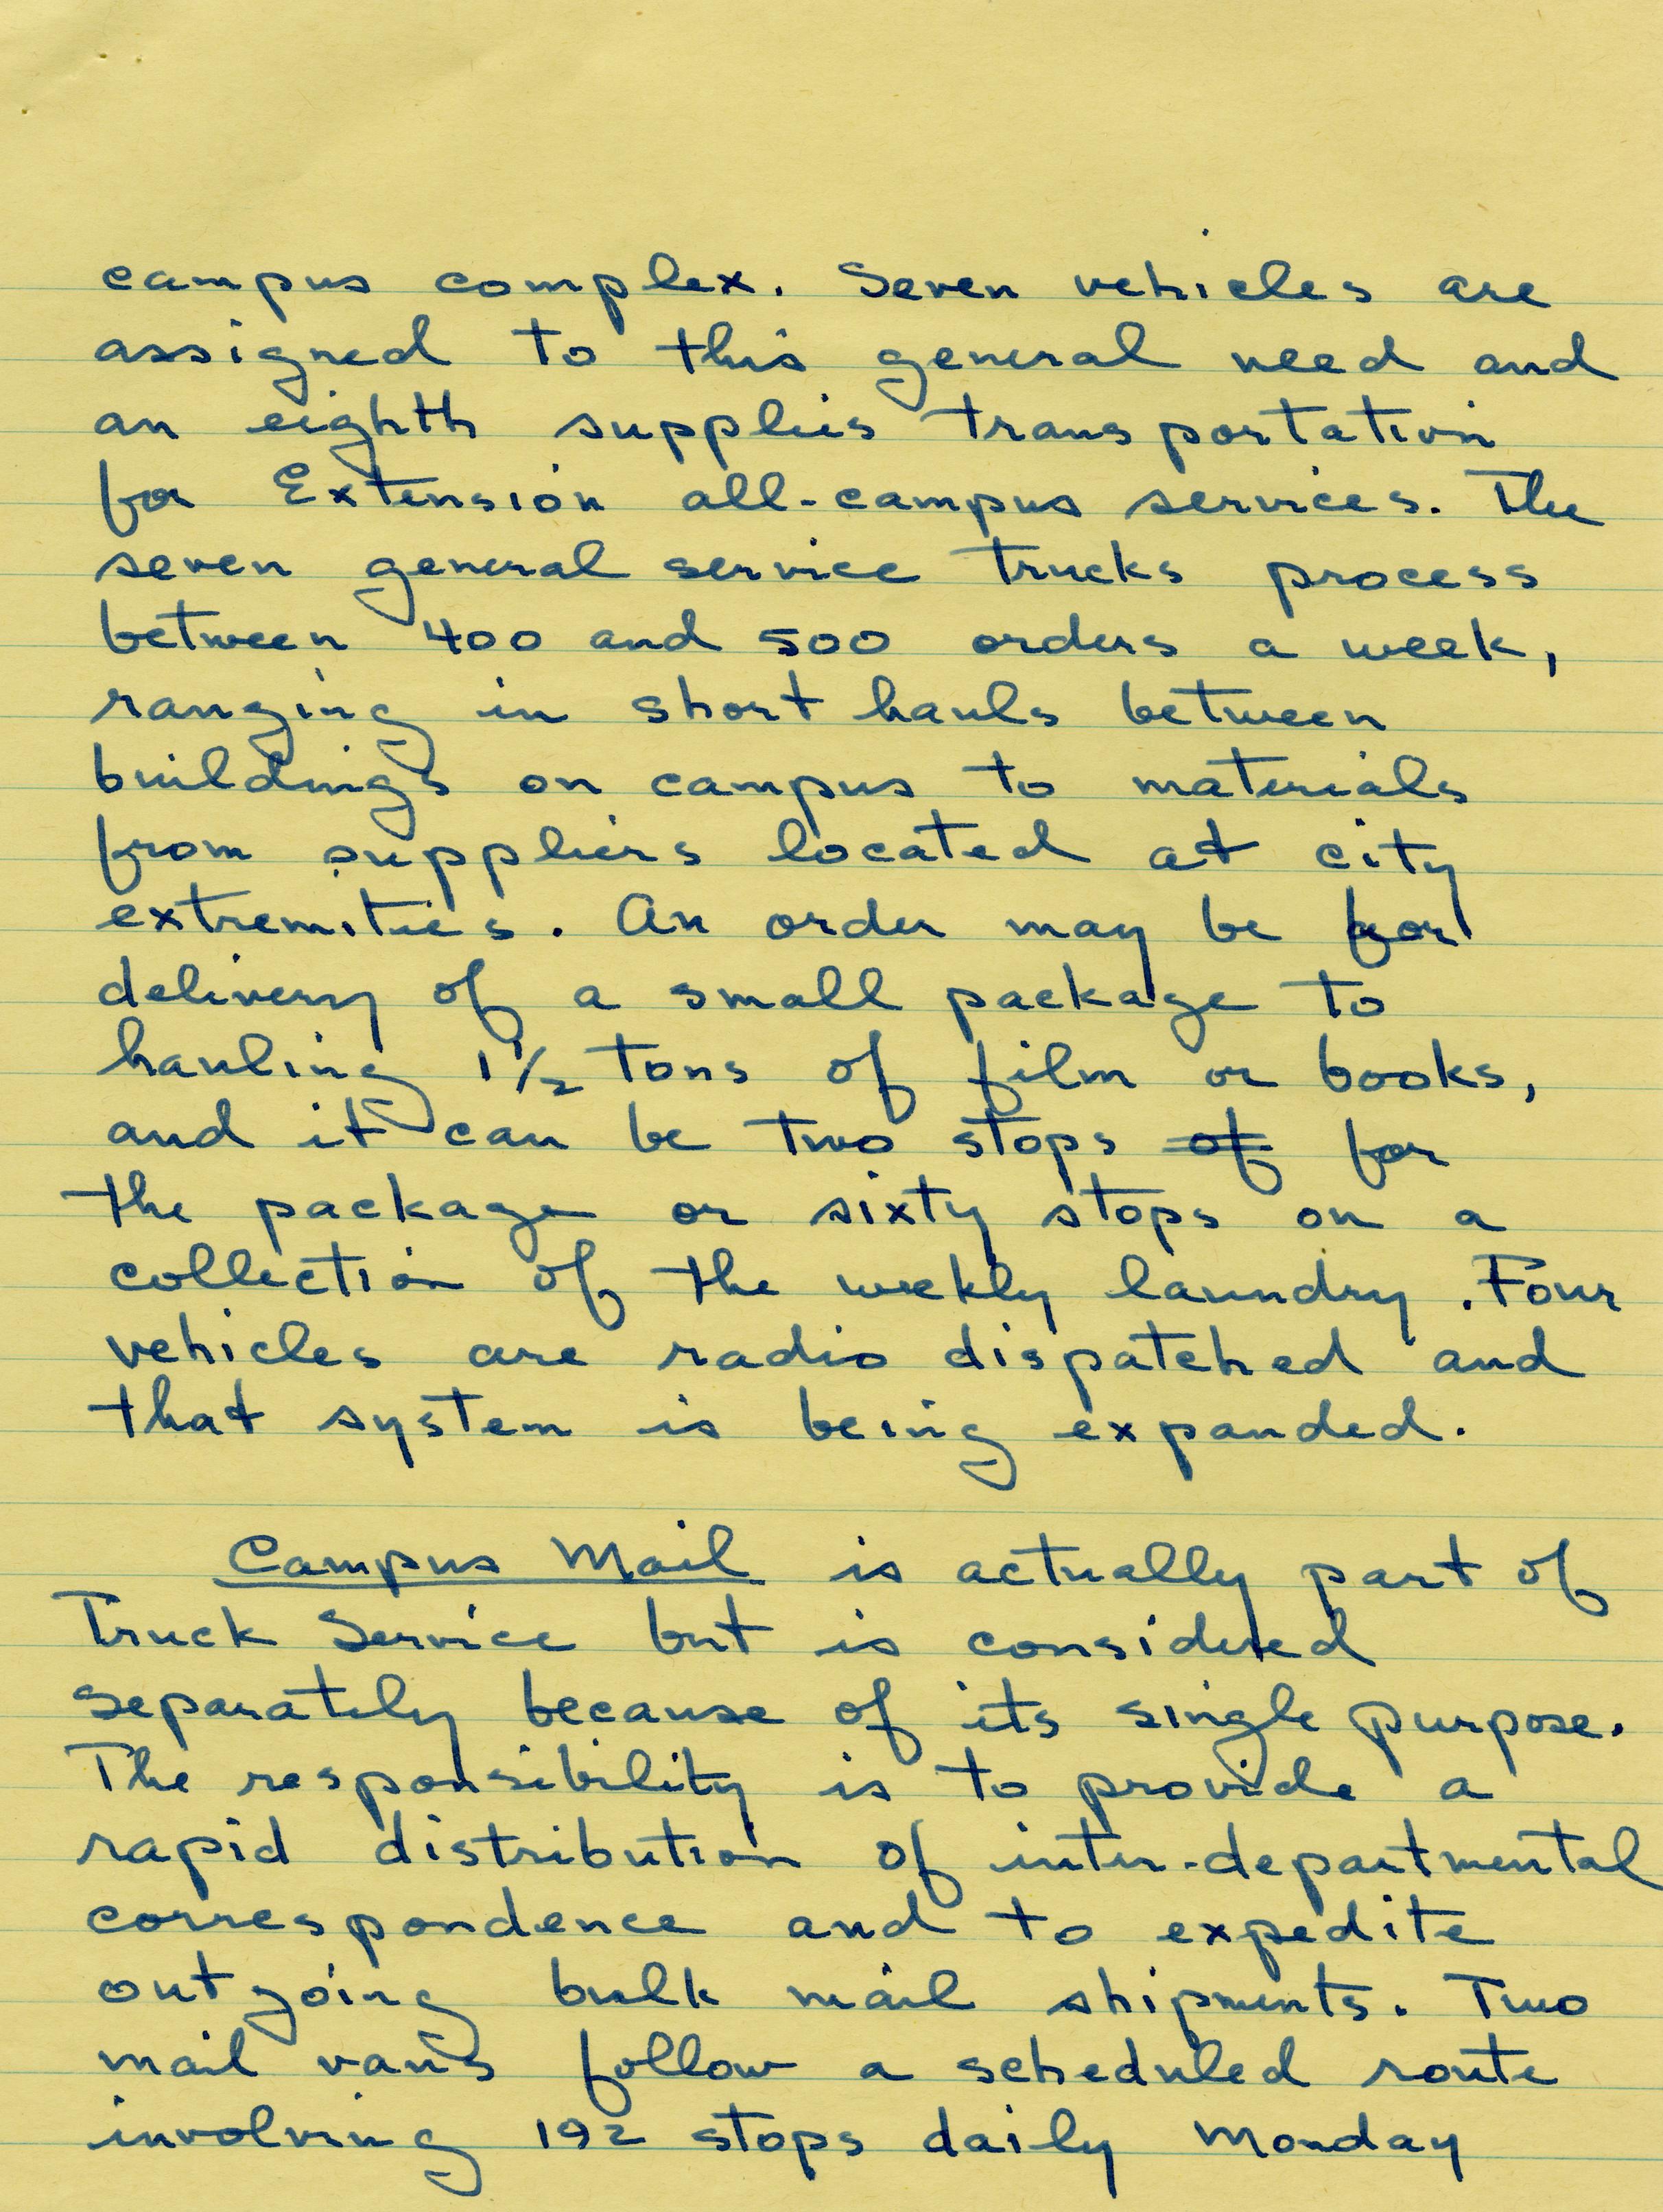 campus complex. Seven vehicles are
assigned to this general need and
an eighth supplies transportation
for Extension all-campus services. The
seven general service trucks process
between 400 and 500 orders a week,
ranging in short hauls between
buildings on campus to materials
from suppliers located at city
extremities. An order may be for
delivery of a small package to
hauling 1½ tons of film or books,
and it can be two stops of for
the package or sixty stops on a
collection of the weekly laundry. Four
vehicles are radio dispatched and
that system is being expanded.
Campus Mail is actually part of
Truck Service but is considered
separately because of its single purpose.
The responsibility is to provide a
rapid distribution of inter-departmental
correspondence and to expedite
outgoing bulk mail shipments. Two
mail vans follow a scheduled route
involving 192 stops daily Monday